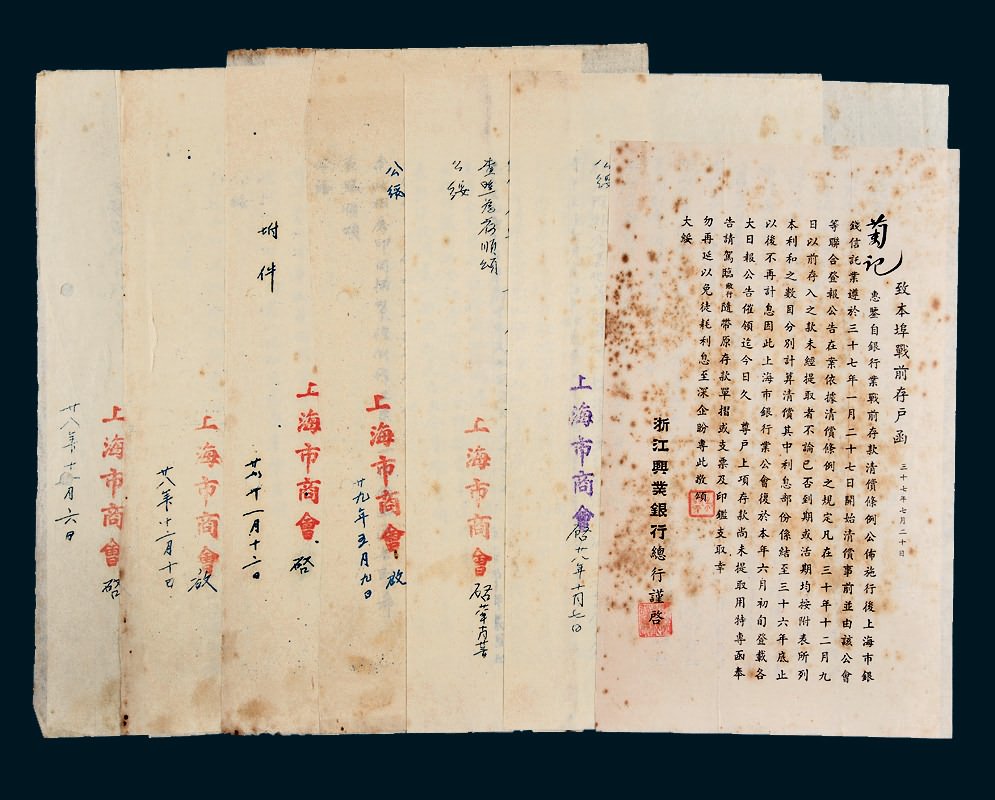 致本埠戰前存戶函
三十七年七月二十日
蔔記
惠鑒自銀行業戰前存款清償條例公佈施行後上海市銀
錢信託業遵於三十七年一月二十七日開始清償事前並由該公會
等聯合登報公告在案依據清償條例之規定凡在三十年十二月九
日以前存入之款未經提取者不論已否到期或活期均按附表所列
本利和之數目分別計算清償其中利息部份係結至三十六年底止
以後不再計息因此上海市銀行業公會復於本年六月初旬登載各
大日報公告催領迄今日久 尊戶上項存款尚未提取用特專函奉
告請駕臨敝行隨帶原存款單摺或支票及印鑑支取幸
勿再延以免徒耗利息至深企盼專此敬頌
大綏
浙江興業銀行總行謹啓
公綏
上海市商會
啟 廿八年十月七日
查照為荷順頌
公綏
上海市商會
啓
公綏
上海市商會
啟
廿九年五月九日
上海市商會
啓
附件
十一月十二日
上海市商會
啟
廿八年十二月十
上海市商會
啓
廿八年
月六日